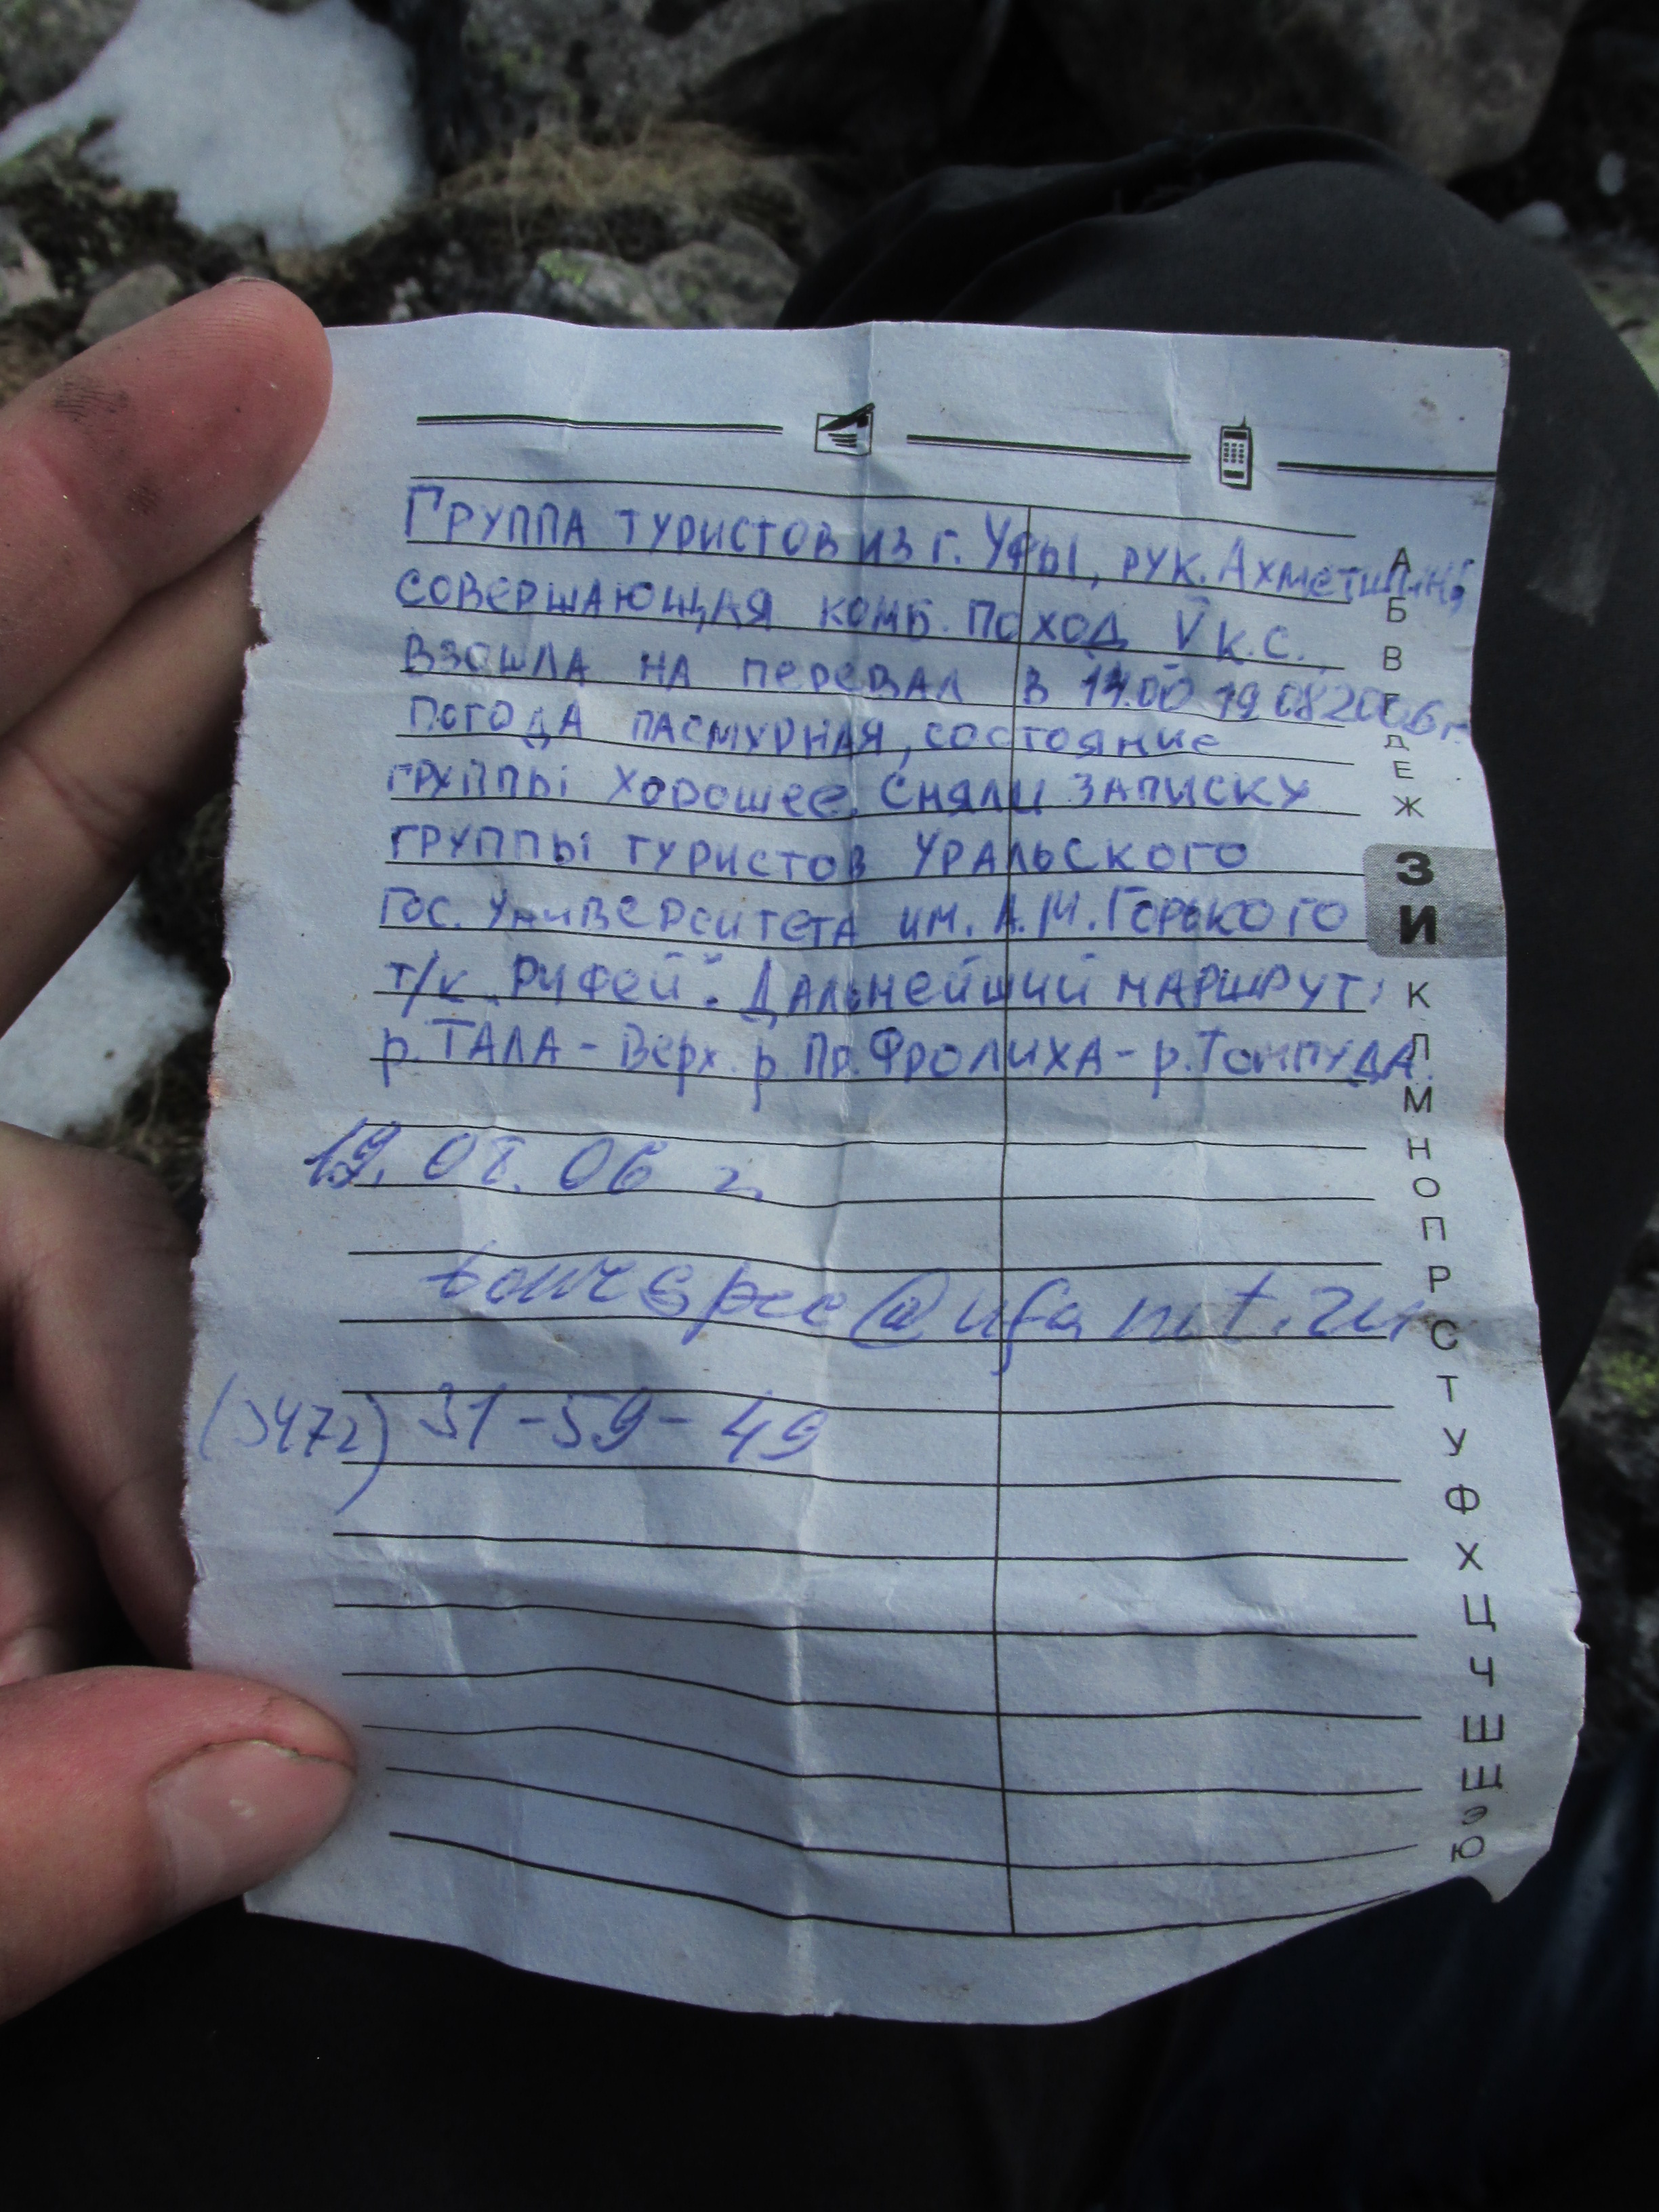 Группа туристов из г. Уфы, рук. Ахметшин,
совершающая комб. поход V к.с.,
взошла на перевал в 14.00 19.08 2006 г.
Погода пасмурная, состояние
группы хорошее. Сняли записку
группы туристов Уральского
Гос. Университета им. А.М. Горького
т/к „Рифей". Дальнейший маршрут:
р. Тала - Верх. р. Пр. Фролиха - р. Томпуда.
19.08.06 г.
tourspec@ufanet.ru
(3472) 31-59-49
А
Б
В
Г
Д
Е
Ж
З
И
К
Л
М
Н
О
П
Р
С
Т
У
Ф
Х
Ц
Ч
Ш
Щ
Э
Ю